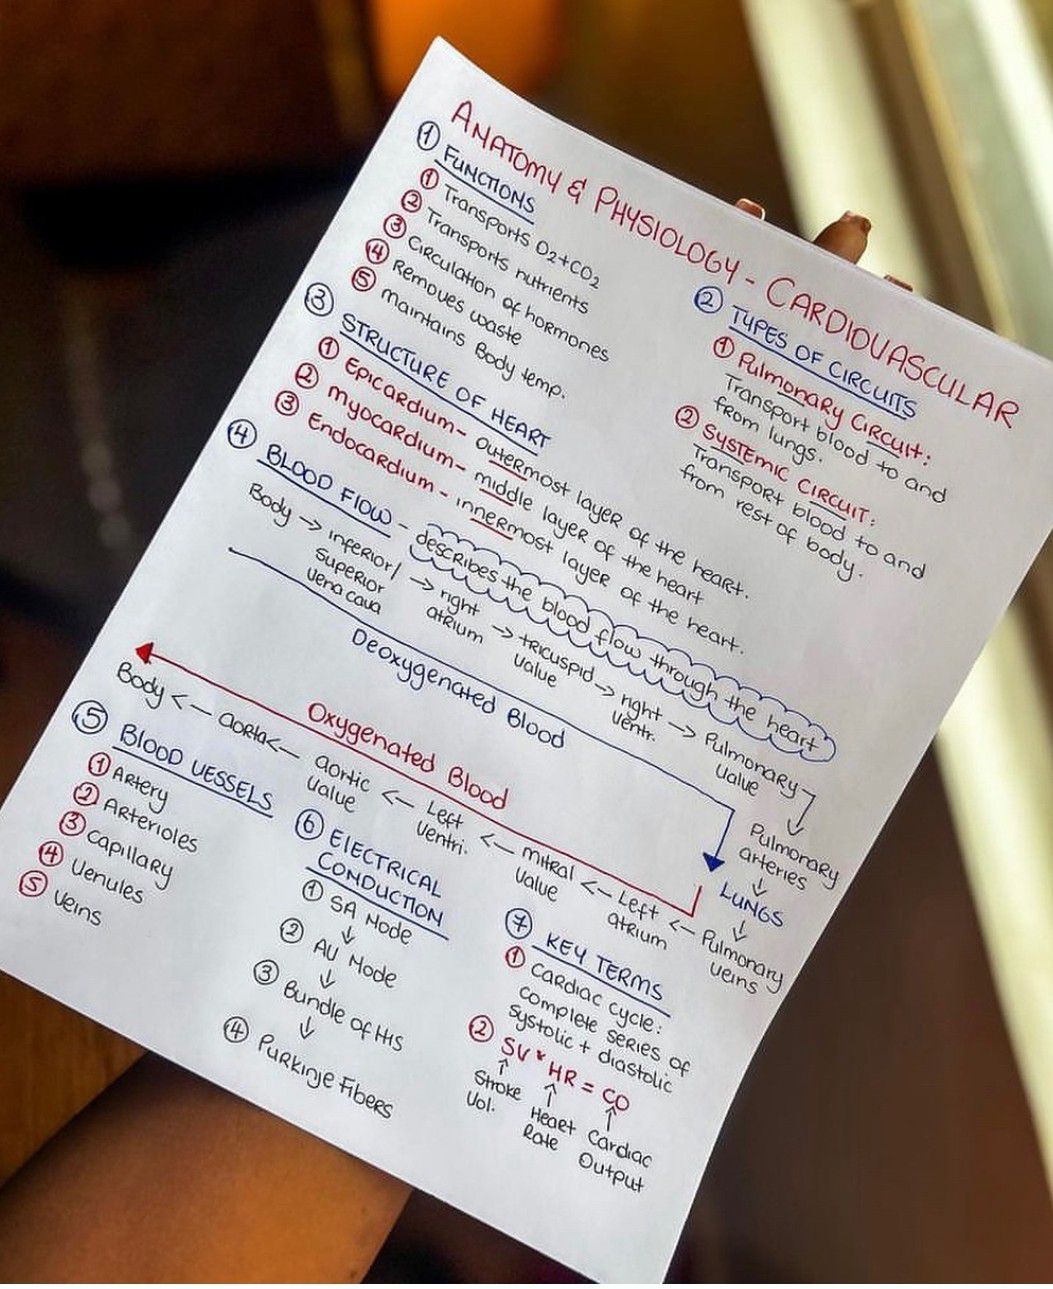 ANATOMY & PHYSIOLOGY - CARDIOVASCULAR
① FUNCTIONS
① Transports O2+CO2
② Transports nutrients
③ Circulation of hormones
④ Removes waste
⑤ maintains Body temp.
② TYPES OF CIRCUITS
① Pulmonary CIRCUIT:
Transport blood to and
from lungs.
② SYSTEMIC CIRCUIT:
Transport blood to and
from rest of body.
③ STRUCTURE OF HEART
① Epicardium- outermost layer of the heart.
② myocardium- middle layer of the heart
③ Endocardium - innermost layer of the heart.
④ BLOOD FLOW - describes the blood flow through the heart
Body → inferior/ → right → tricuspid → right → Pulmonary
superior atrium valve ventr. valve
vena cava
Deoxygenated Blood
Pulmonary
arteries
↓
LUNGS
↓
Pulmonary
veins
Oxygenated Blood
Body <— aorta <— aortic <— Left <— mitral <— Left <—
valve ventri. valve atrium
⑤ BLOOD VESSELS
① Artery
② Arterioles
③ capillary
④ venules
⑤ veins
⑥ ELECTRICAL
CONDUCTION
① SA Node
↓
② AV Node
↓
③ Bundle of HIS
↓
④ Purkinje Fibers
⑦ KEY TERMS
① Cardiac cycle:
complete series of
systolic + diastolic
② SV * HR = CO
↑ ↑ ↑
Stroke Heart Cardiac
Vol. Rate Output